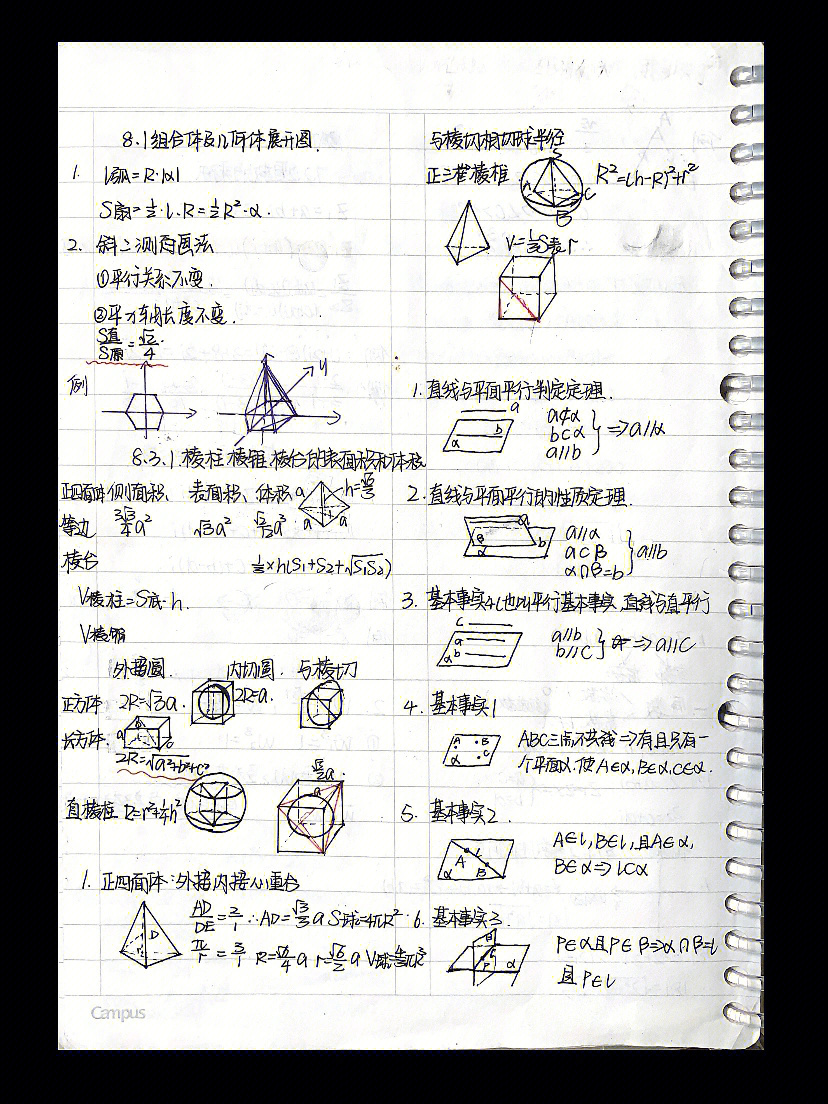 8.1组合体及几何体展开图.
1. l扇=R·|α|
S扇=½·l·R=½R²·α.
2. 斜二测画法
①平行关系不变.
②平y轴长度不变.
S直/S原=√2/4
例
y
8.3.1.棱柱.棱锥.棱台的表面积和体积
正四面体 侧面积、表面积、体积 a a a
等边 3√3/4a² √3a²
棱台 ⅓×h(S₁+S₂+√S₁S₂)
V棱柱=S底·h.
V棱锥
外接圆. 内切圆. 与棱切
正方体. 2R=√3a. 2R=a.
长方体. a b
2R=√a²+b²+c²
√2a.
a
直棱柱 R=r²+¼h²
1. 正四面体:外接内接心重合
D
AD/DE=3/1 ∴AD=√3/3a S球=4πR²
R=√6/4a
与棱切相切球半径
正三棱椎 S A C B R²=(h-R)²+r²
V=⅓S表r
1. 直线与平面平行判定定理.
a b α
a⊄α
b⊂α
a∥b
⇒a∥α
2. 直线与平面平行的性质定理.
a β α b
a∥α
a⊂β
α∩β=b
a∥b
3. 基本事实4(也叫平行基本事实,直线与直平行
c a b α
a∥b
b∥c
⇒a∥c
4. 基本事实1
A B C α
ABC三点不共线⇒有且只有一
个平面α.使A∈α,B∈α,C∈α.
5. 基本事实2.
α A B l
A∈l,B∈l,且A∈α,
B∈α⇒l⊂α
6. 基本事实3
β P α
P∈α且P∈β⇒α∩β=l
且P∈l
Campus